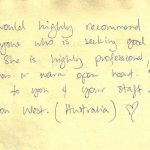 would highly recommend
yone who is seeking good
She is highly professional,
warm open heart.
to you & your staff.
on West. (Australia) ♡